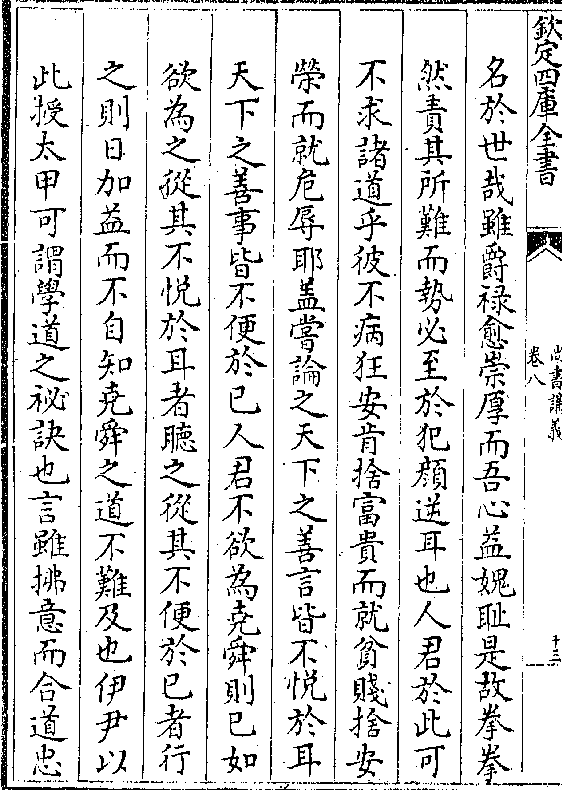 欽定四庫全書
尚書講義
卷八
十三
名於世哉雖爵禄愈崇厚而吾心益媿耻是故拳拳
然責其所難而勢必至於犯顔逆耳也人君於此可
不求諸道乎彼不病狂安肯捨富貴而就貧賤捨安
榮而就危辱耶盖嘗論之天下之善言皆不悦於耳
天下之善事皆不便於已人君不欲為堯舜則已如
欲為之從其不悦於耳者聽之從其不便於已者行
之則日加益而不自知堯舜之道不難及也伊尹以
此授太甲可謂學道之祕訣也言雖拂意而合道忠